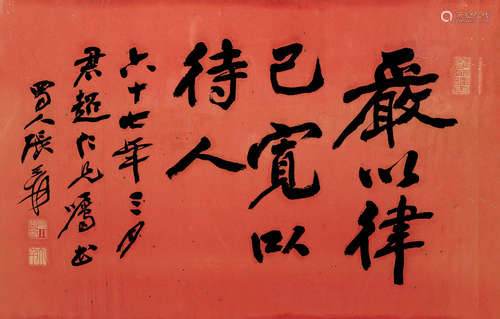 嚴以律
己寬以
待人
六十七年三月
君超仁兄囑書
蜀人張爰